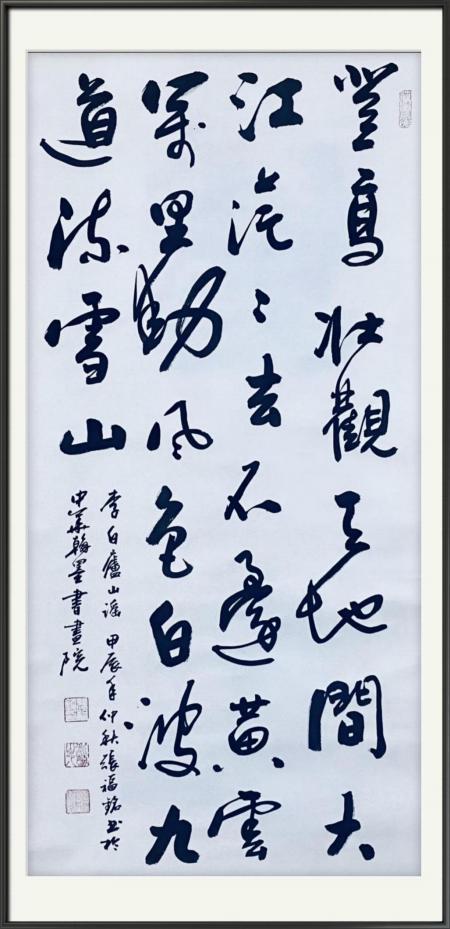 登高壯觀天地間大
江茫〻去不還黄雲
萬里動風色白波九
道流雪山
李白廬山謡 甲辰年仲秋張福銘書於
中華翰墨書畫院